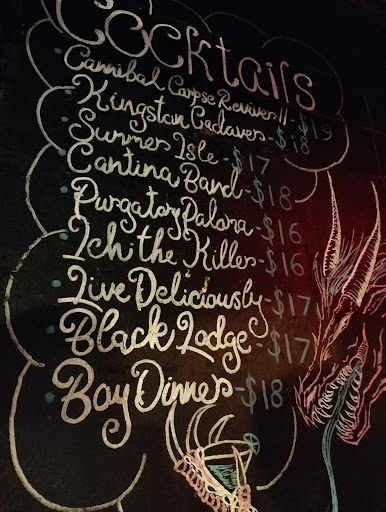 Cocktails
Cannibal Corpse Reviver II - $19
Kingston Enclaves - $18
Summer Isle - $17
Cantina Band - $18
Purgatory Paloma - $16
Ichi the Killer - $16
Live Deliciously - $17
Black Lodge - $17
Boy Dinner - $18